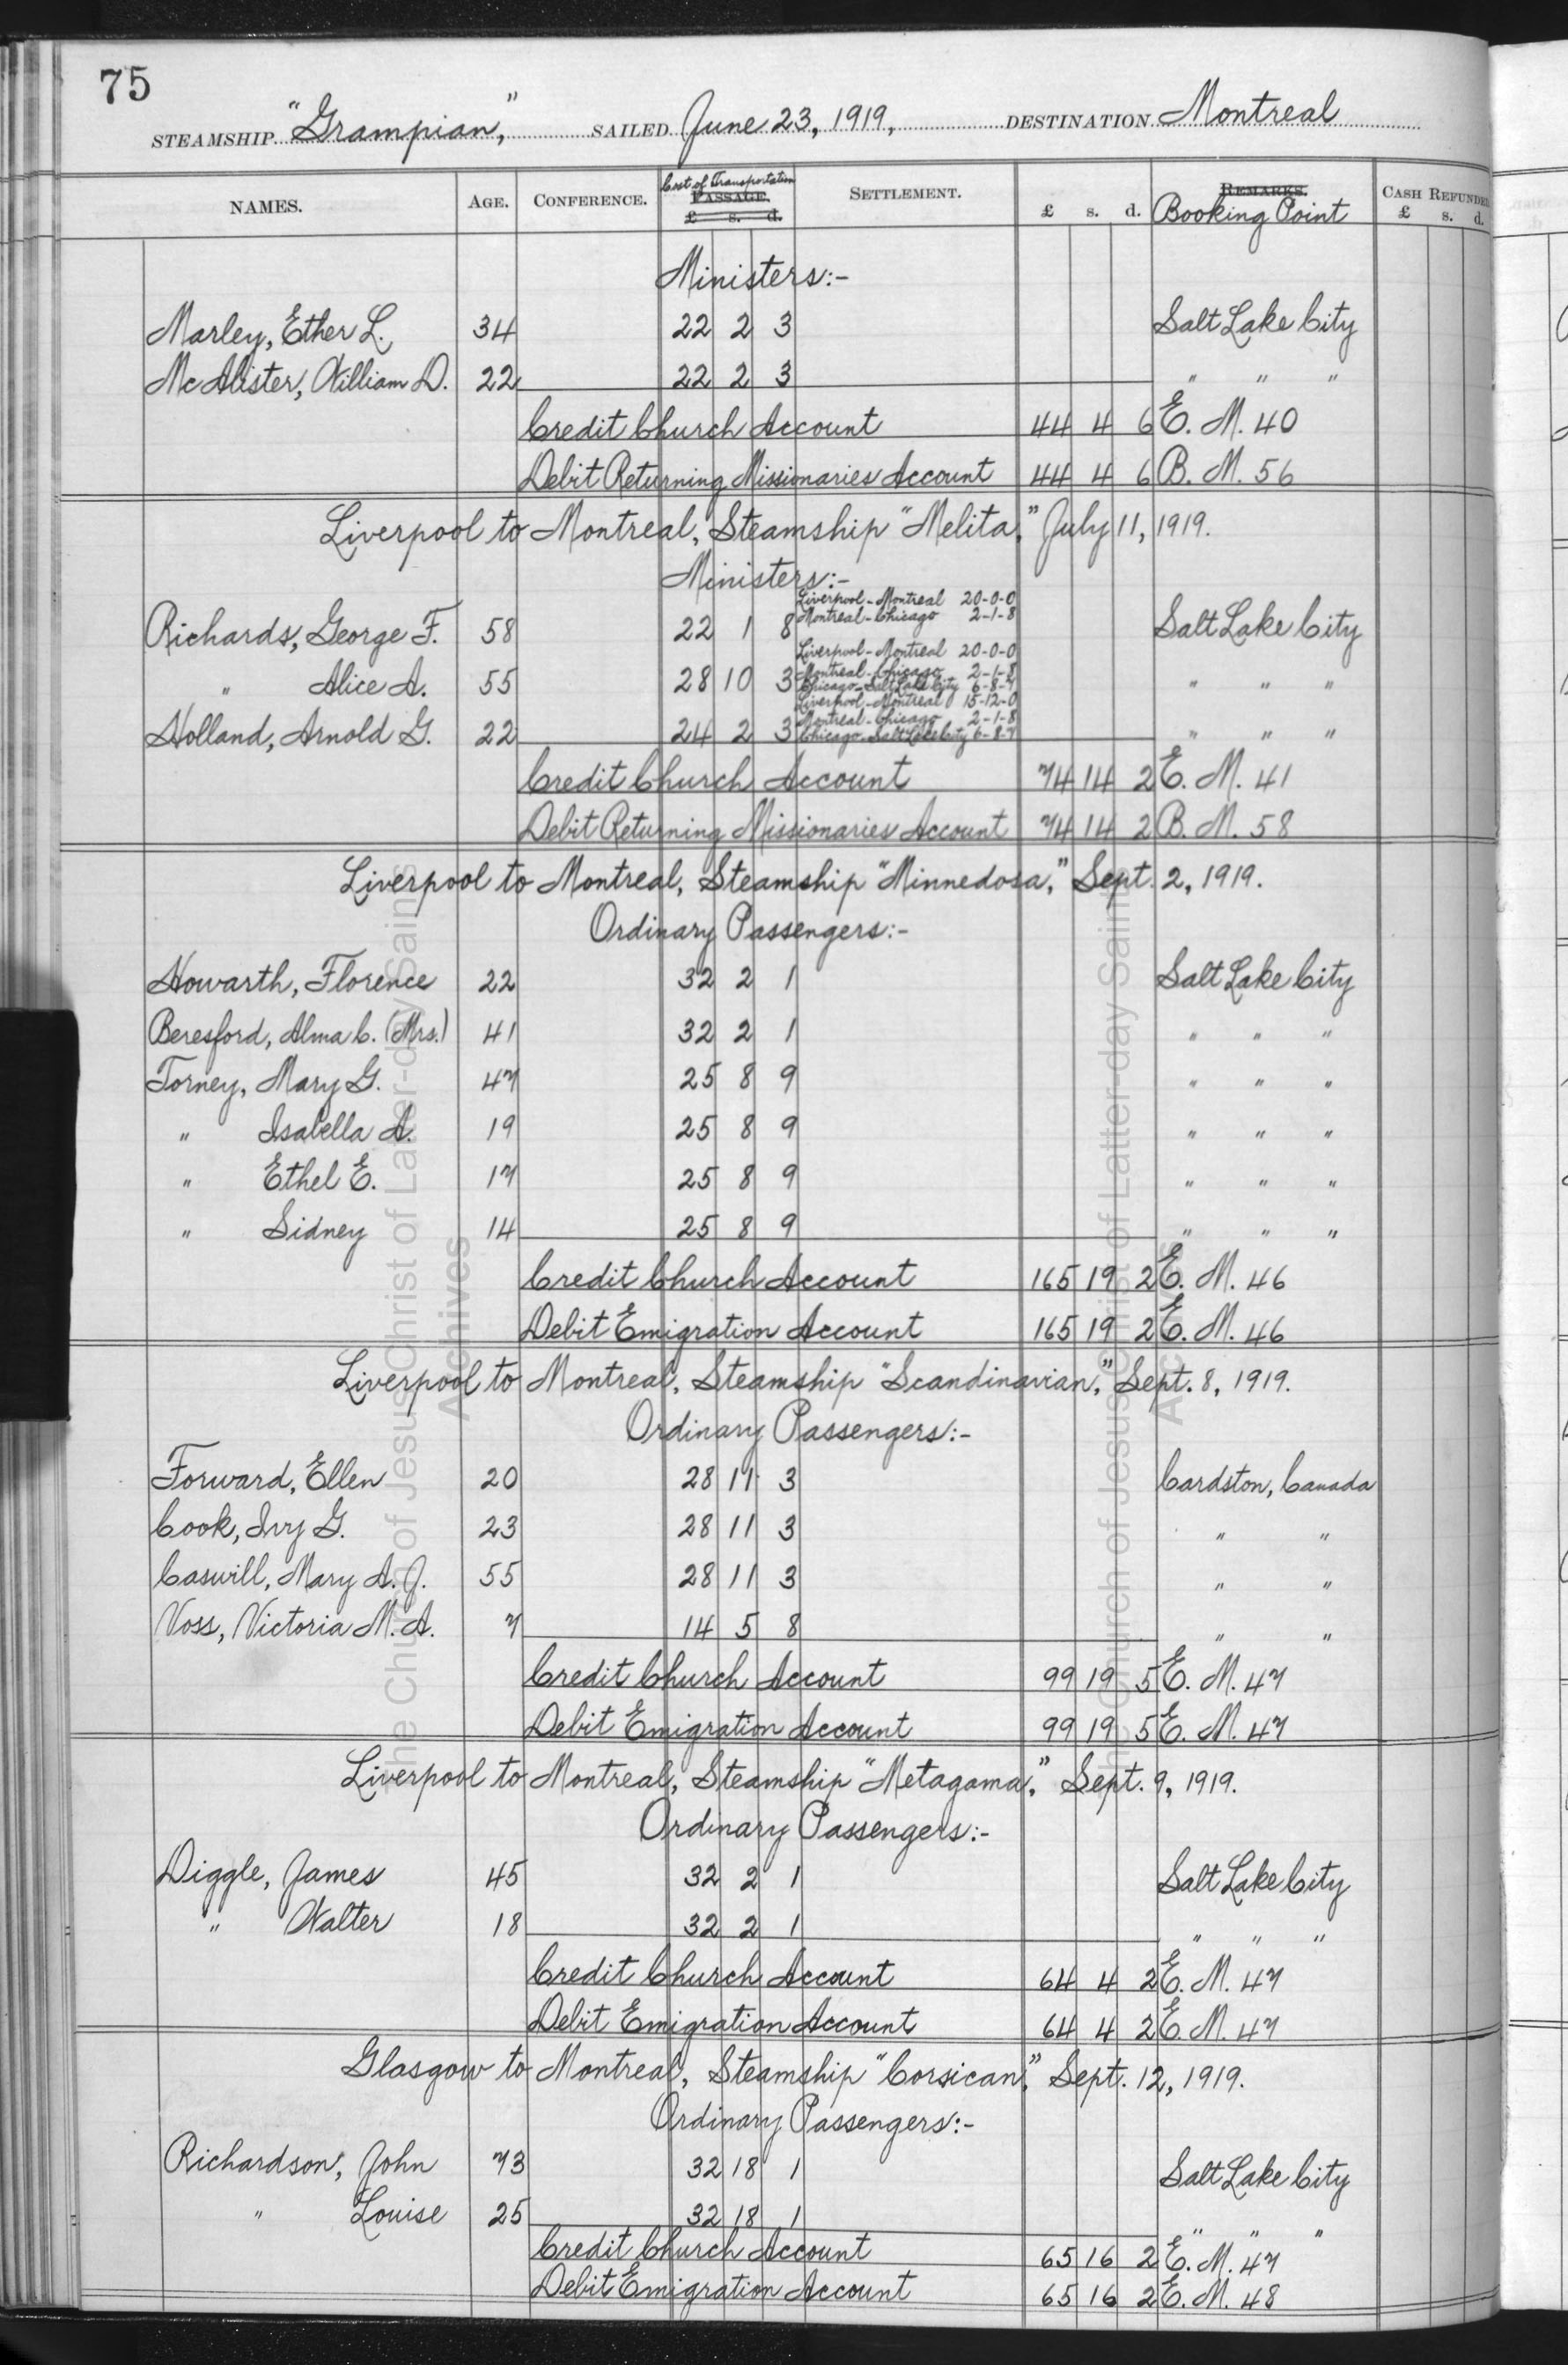 75
STEAMSHIP "Grampian," SAILED June 23, 1919, DESTINATION Montreal
NAMES. AGE. CONFERENCE. Cost of Transportation PASSAGE. £ s. d. SETTLEMENT. £ s. d. REMARKS. Booking Point CASH REFUNDED £ s. d.
Ministers:-
Marley, Ether L. 34 22 2 3 Salt Lake City
McAlister, William D. 22 22 2 3 " " "
Credit Church Account 44 4 6 E. M. 40
Debit Returning Missionaries Account 44 4 6 B. M. 56
Liverpool to Montreal, Steamship "Melita," July 11, 1919.
Ministers:-
Liverpool-Montreal 20-0-0
Richards, George F. 58 22 1 8 Montreal-Chicago 2-1-8 Salt Lake City
Liverpool-Montreal 20-0-0
" Alice A. 55 28 10 3 Montreal-Chicago 2-1-8 " " "
Chicago-Salt Lake City 6-8-7
Liverpool-Montreal 15-12-0
Holland, Arnold G. 22 24 2 3 Montreal-Chicago 2-1-8 " " "
Chicago-Salt Lake City 6-8-7
Credit Church Account 74 14 2 E. M. 41
Debit Returning Missionaries Account 74 14 2 B. M. 58
Liverpool to Montreal, Steamship "Minnedosa," Sept. 2, 1919.
Ordinary Passengers:-
Howarth, Florence 22 32 2 1 Salt Lake City
Beresford, Alma C. (Mrs.) 41 32 2 1 " " "
Torney, Mary G. 47 25 8 9 " " "
" Isabella A. 19 25 8 9 " " "
" Ethel E. 17 25 8 9 " " "
" Sidney 14 25 8 9 " " "
Credit Church Account 165 19 2 E. M. 46
Debit Emigration Account 165 19 2 E. M. 46
Liverpool to Montreal, Steamship "Scandinavian," Sept. 8, 1919.
Ordinary Passengers:-
Forward, Ellen 20 28 11 3 Cardston, Canada
Cook, Ivy G. 23 28 11 3 " "
Caswill, Mary A. J. 55 28 11 3 " "
Voss, Victoria M. A. 7 14 5 8 " "
Credit Church Account 99 19 5 E. M. 47
Debit Emigration Account 99 19 5 E. M. 47
Liverpool to Montreal, Steamship "Metagama," Sept. 9, 1919.
Ordinary Passengers:-
Diggle, James 45 32 2 1 Salt Lake City
" Walter 18 32 2 1 " " "
Credit Church Account 64 4 2 E. M. 47
Debit Emigration Account 64 4 2 E. M. 47
Glasgow to Montreal, Steamship "Corsican," Sept. 12, 1919.
Ordinary Passengers:-
Richardson, John 73 32 18 1 Salt Lake City
" Louise 25 32 18 1 " " "
Credit Church Account 65 16 2 E. M. 47
Debit Emigration Account 65 16 2 E. M. 48
The Church of Jesus Christ of Latter-day Saints
Archives
The Church of Jesus Christ of Latter-day Saints
Archives